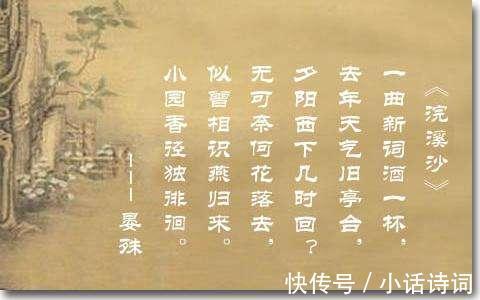 《浣溪沙》
一曲新词酒一杯，
去年天气旧亭台，
夕阳西下几时回？
无可奈何花落去，
似曾相识燕归来。
小园香径独徘徊。
---晏殊
快传号 / 小话诗词